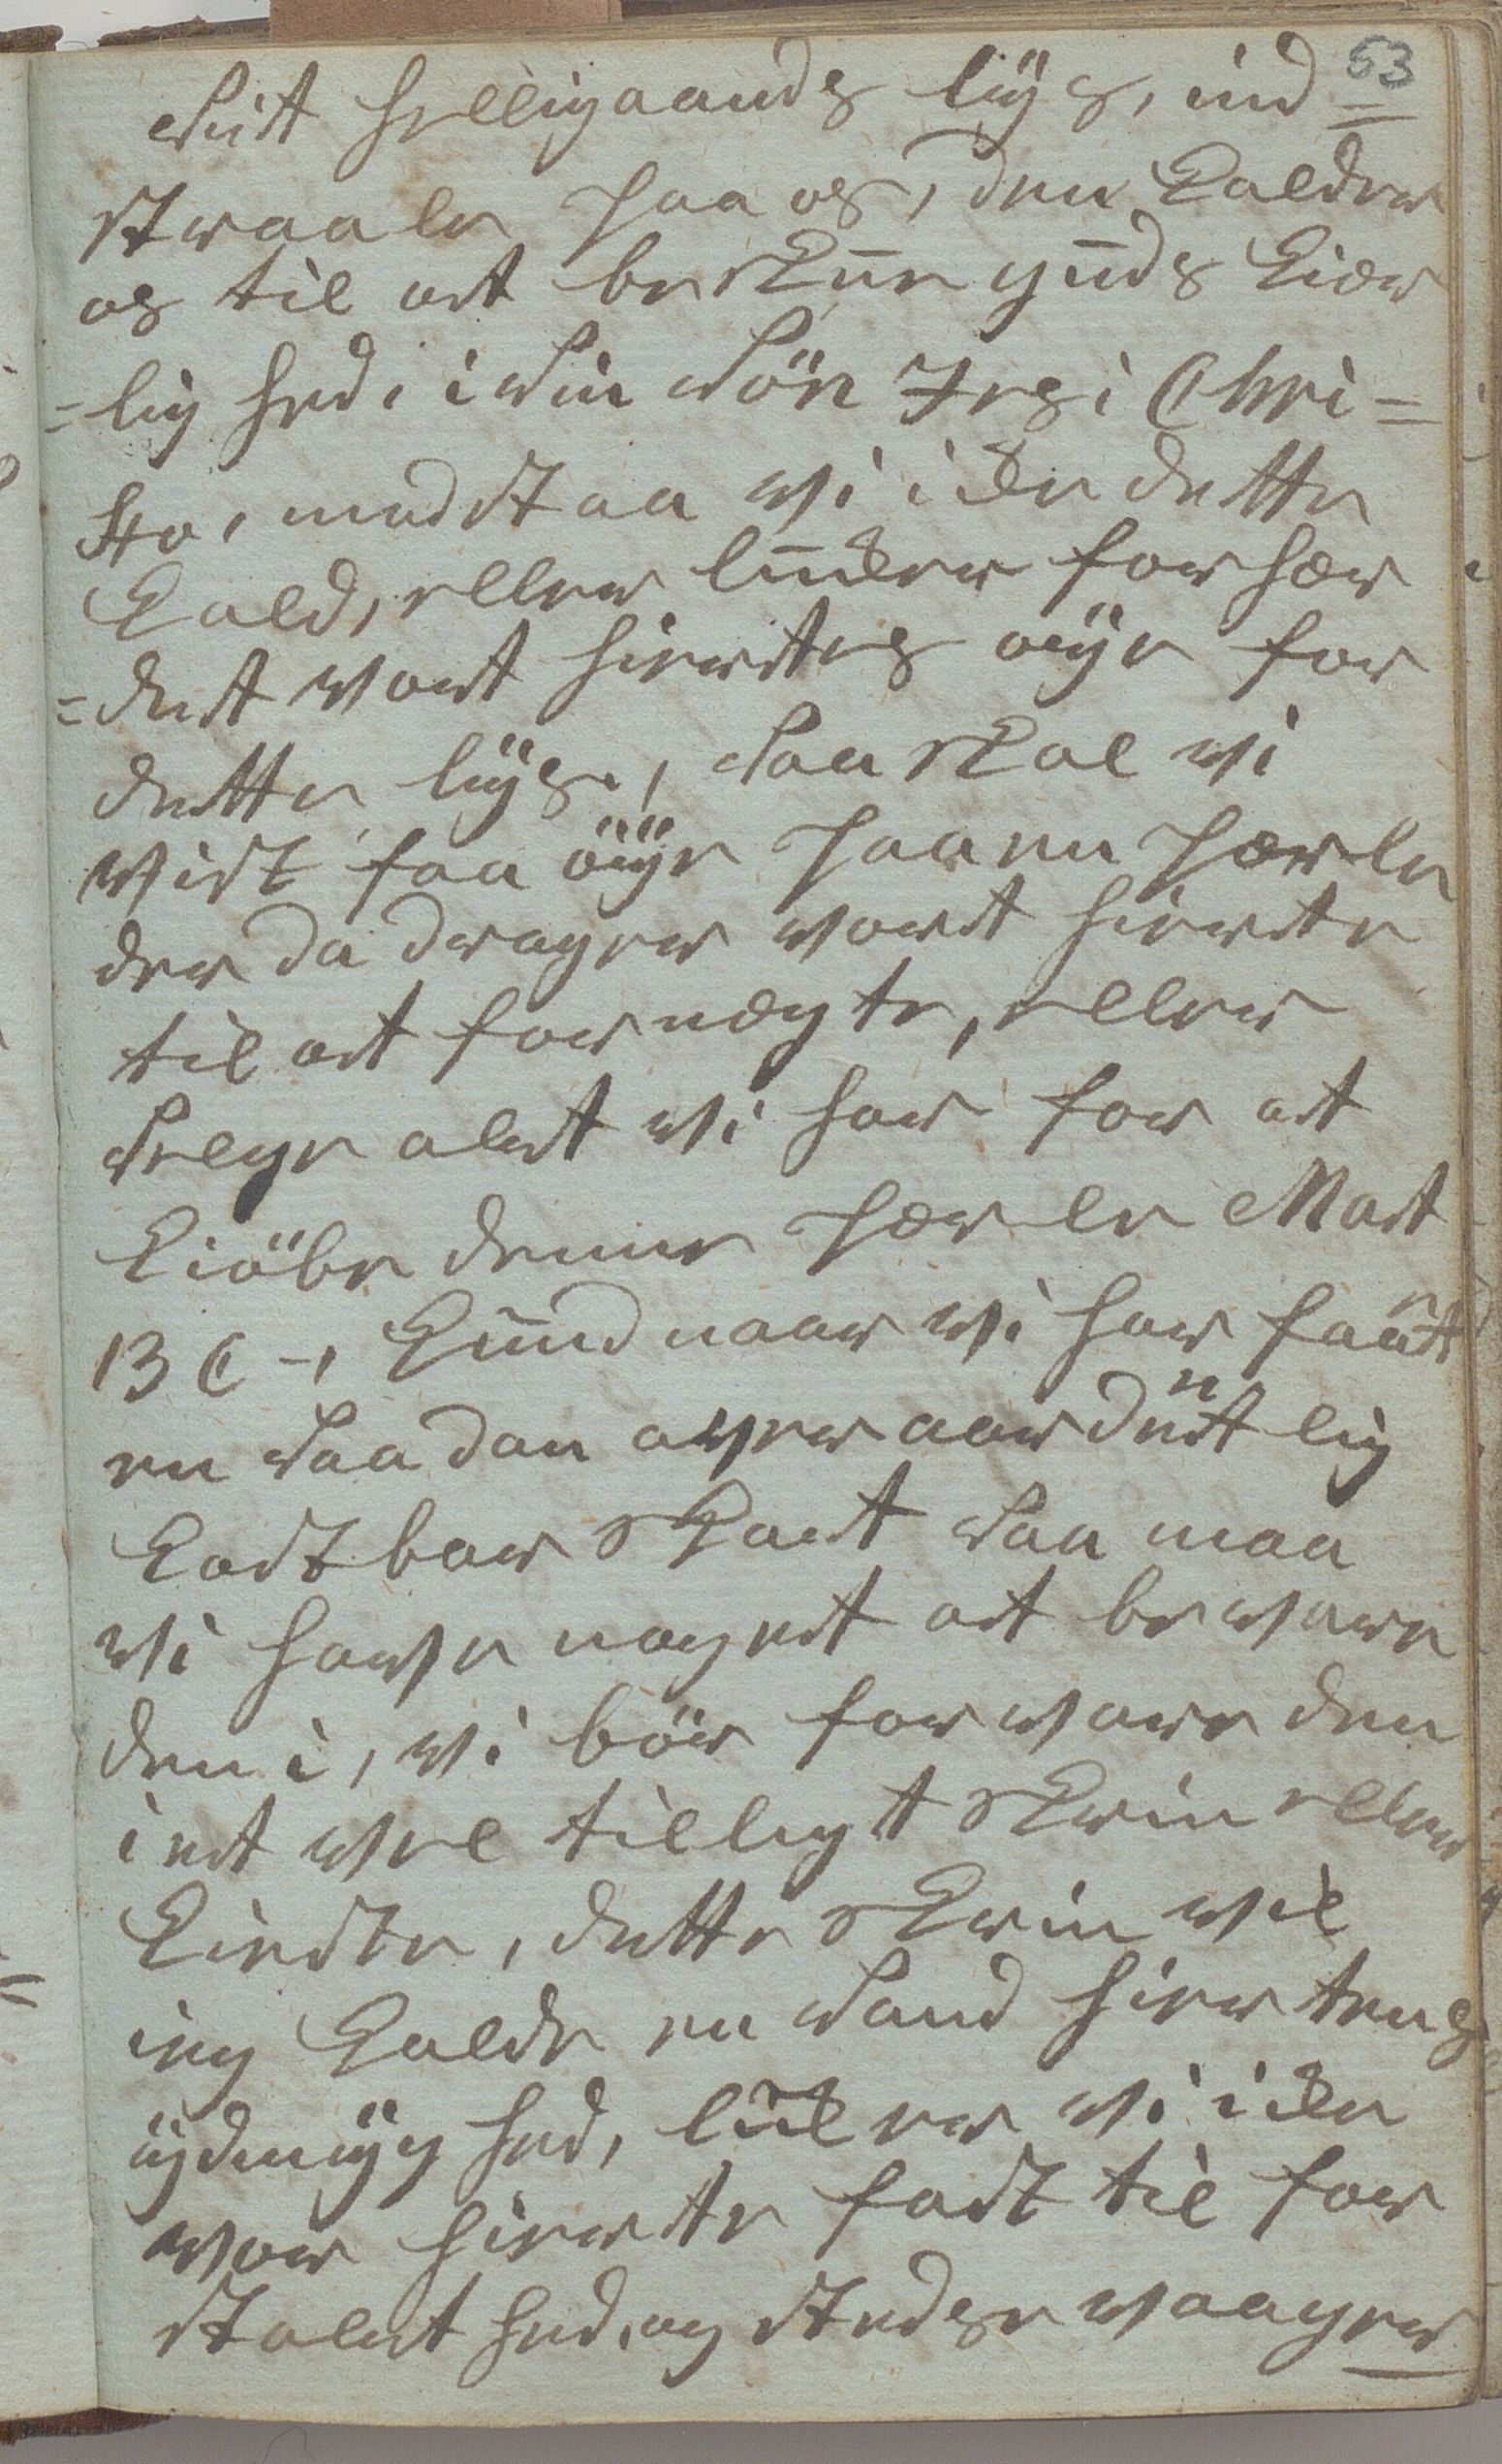 53
Sitt helligaands lÿs, ind=
straale paa os, den Kalder
os til at beskue guds Kier
=lighed, i Sin Sön Jesi Chri=
sto, modstaa vi icke dette
Kald, eller lucker forhær
=det vort hiertes øÿe for
dette lÿs, Saa skal vi
vist faa öÿe paa en Pærle
der da drager vort hierte
til at fornegte, eller
Selge alt vi har for at
Kiöbe denne Pærle Mat
13 C -, Kund naar vi har faaet
en Saadan overaardentlig
Kostbar Skat Saa maa
vi have noget at bevare
den i, vi bör forvare den
i et vel tillugt Skrin eller
Kieste, dette Skrin vil
ieg Kalde en Sand hiertens
ÿdmÿghed, lucker vi icke
vor hierte fast til for
stolthed, og stedse vaager